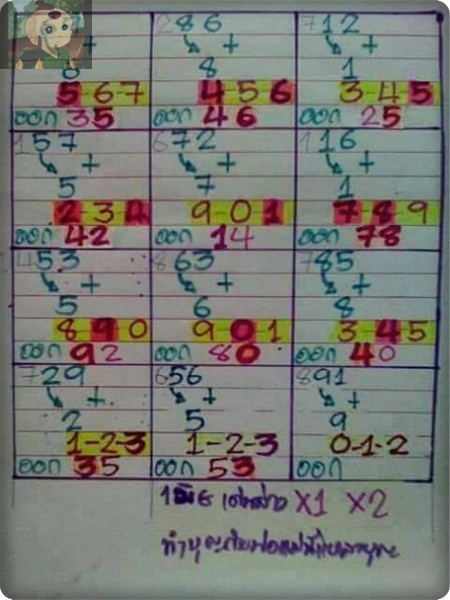 +
8
5 6-7
ออก 35
286
+
8
4 5 6
ออก 46
712
+
1
3-4-5
ออก 25
157
+
5
2-3-4
ออก 42
672
+
7
9-0-1
ออก 14
116
+
1
7-8-9
ออก 78
453
+
5
8 9 0
ออก 92
863
+
6
9-0-1
ออก 80
785
+
8
3-4-5
ออก 40
729
+
2
1-2-3
ออก 35
656
+
5
1-2-3
ออก 53
891
+
9
0-1-2
ออก
X1 X2